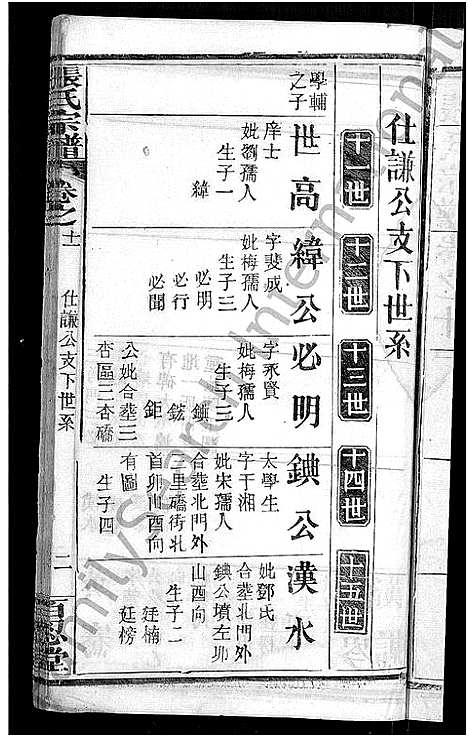 仕謙公支下世系
十一世
十二世
十三世
十四世
十五世
學輔之子
世高
庠士
妣劉孺人
生子一
緯
緯公
字斐成
妣梅孺人
生子三
必明
必行
必聞
必明
字永賢
妣梅孺人
生子三
鉉
鉅
公妣合塟三
杏區三杏礄
錪公
太學生
字干湘
妣宋孺人
合塟北門外
三里礄街北
首卯山酉向
有圖
生子四
漢水
妣鄧氏
合塟北門外
錪公墳左卯
山酉向
生子二
廷楠
廷榜
張氏宗譜
卷之十一
仕謙公支下世系
二
百忍堂
FamilySearch International